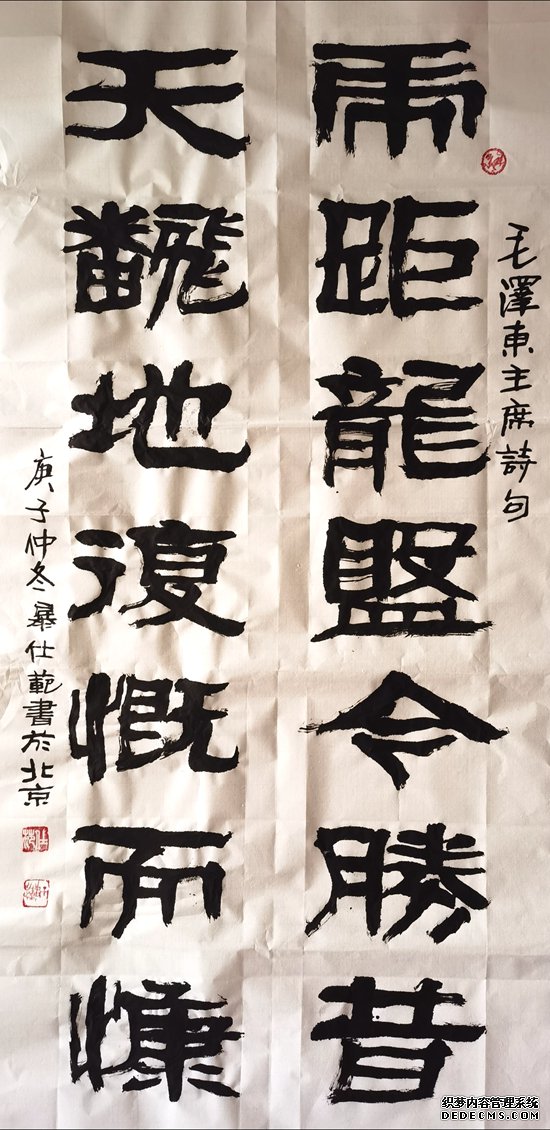 毛澤東主席詩句
虎距龍盤今勝昔
天飜地復慨而慷
庚子仲冬仕範書於北京
织梦内容管理系统
DEDECMS.COM